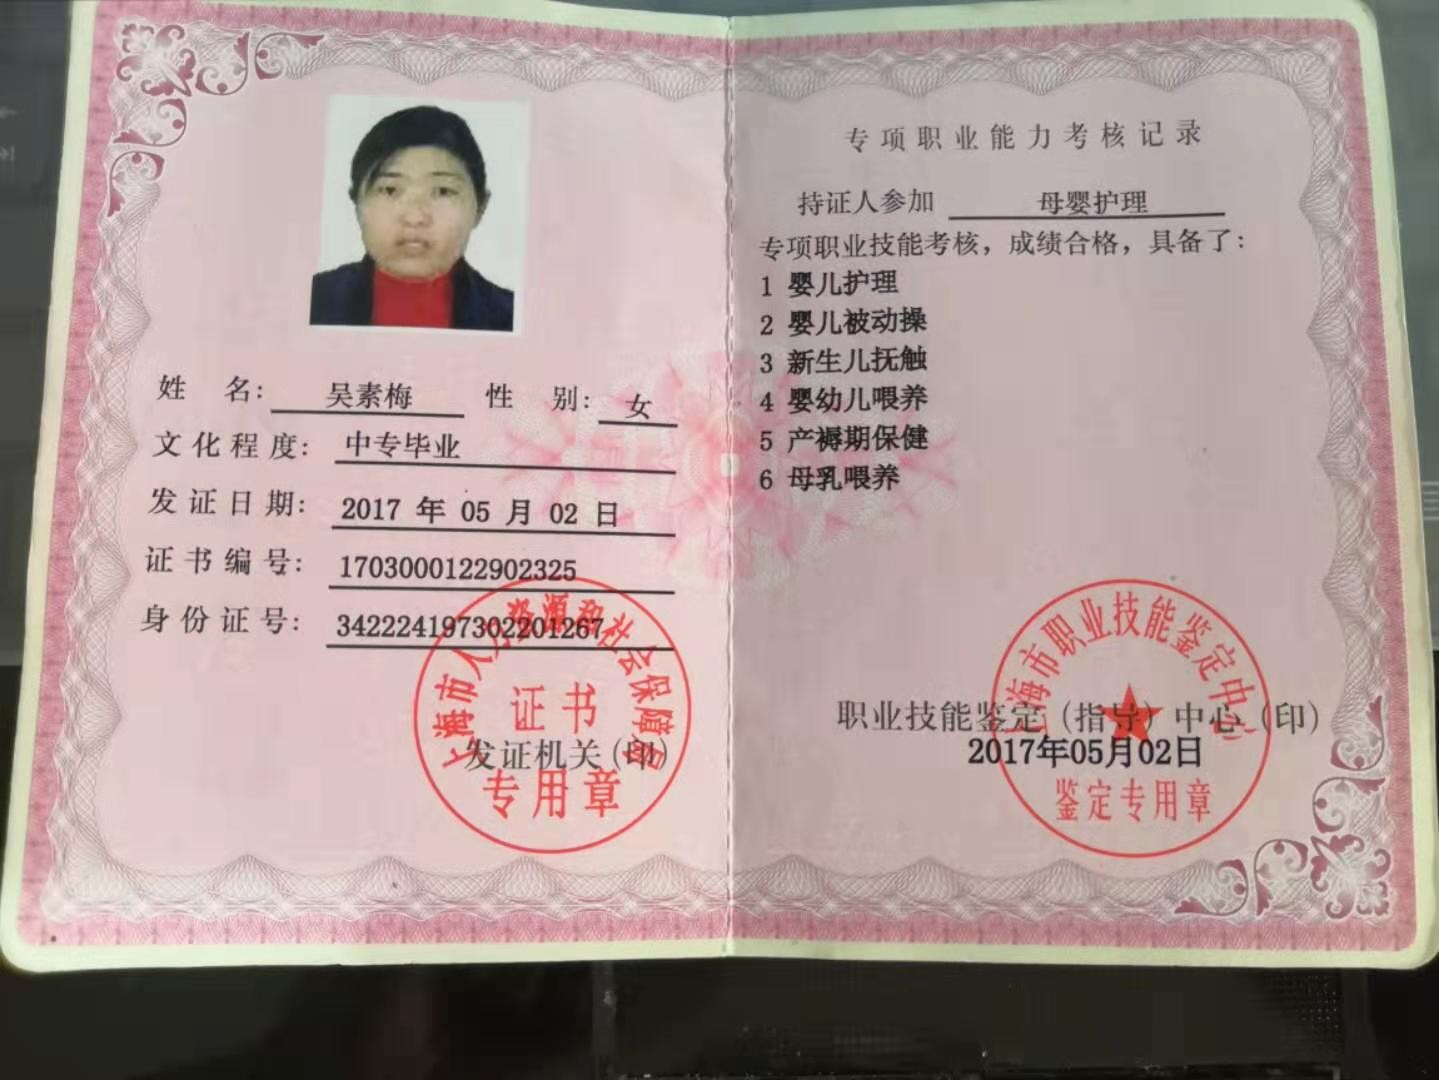 姓 名: 吴素梅 性 别: 女
文化程度: 中专毕业
发证日期: 2017 年 05 月 02 日
证书编号: 1703000122902325
身份证号: 342224197302201267
上海市人力资源和社会保障局
证书
发证机关(印)
专用章
专项职业能力考核记录
持证人参加 母婴护理
专项职业技能考核，成绩合格，具备了:
1 婴儿护理
2 婴儿被动操
3 新生儿抚触
4 婴幼儿喂养
5 产褥期保健
6 母乳喂养
上海市职业技能鉴定中心
职业技能鉴定(指导)中心(印)
2017年05月02日
鉴定专用章